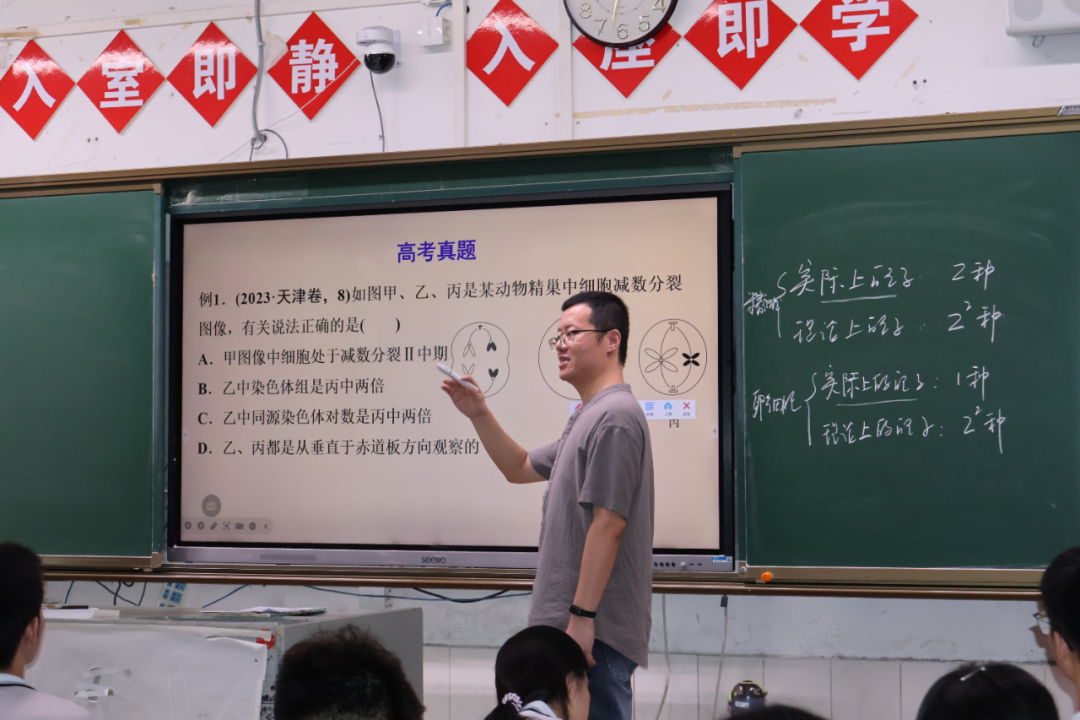 入室即静
入座即学
高考真题
例1. (2023·天津卷, 8)如图甲、乙、丙是某动物精巢中细胞减数分裂
图像，有关说法正确的是( )
A. 甲图像中细胞处于减数分裂Ⅱ中期
B. 乙中染色体组是丙中两倍
C. 乙中同源染色体对数是丙中两倍
D. 乙、丙都是从垂直于赤道板方向观察的
丙
seewo
实际上的 2种
理论上的 2²种
卵细胞
实际上的 : 1种
理论上的 : 2²种
4
5
6
7
8